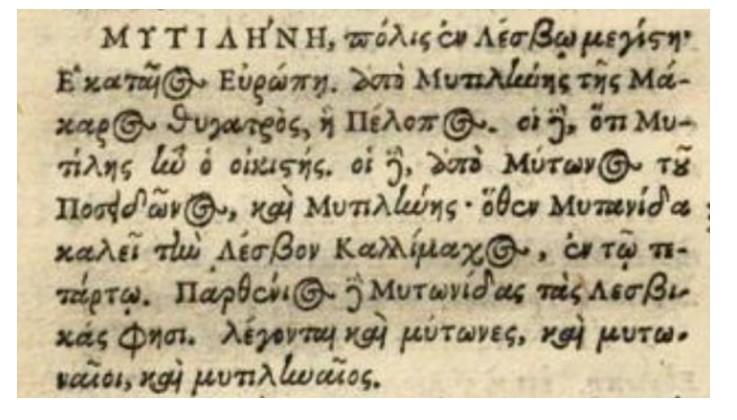 ΜΥΤΙΛΗ´ΝΗ, πόλις ἐν Λέσβῳ μεγίστη·
Ἑκαταῖος Εὐρώπῃ. ἀπὸ Μυτιλήνης τῆς Μά-
καρος θυγατρὸς, ἢ Πέλοπος. οἱ δὲ, ὅτι Μυ-
τίλης ἦν ὁ οἰκιστής. οἱ δὲ, ἀπὸ Μύτωνος τοῦ
Ποσειδῶνος, καὶ Μυτιλήνης· ὅθεν Μυτωνίδα
καλεῖ τὴν Λέσβον Καλλίμαχος, ἐν τῷ τε-
τάρτῳ. Παρθένιος δὲ Μυτωνίδας τὰς Λεσβι-
κάς φησι. λέγονται καὶ μύτωνες, καὶ μυτω-
ναῖοι, καὶ μυτιληναῖος.